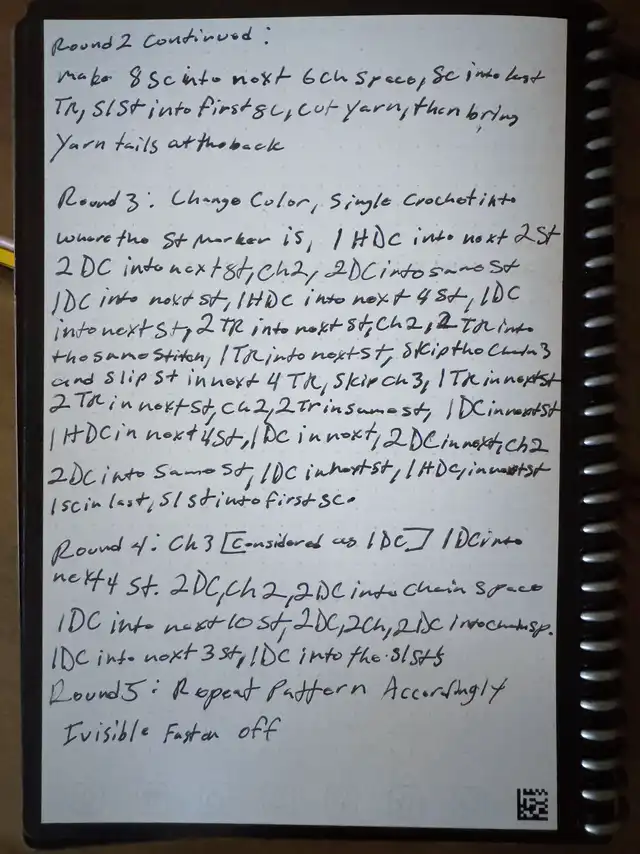 Round 2 Continued:
Make 8 Sc into next 6 ch space, Sc into last
TR, Sl St into first sc, cut yarn, then bring
Yarn tails at the back
Round 3: Change Color, Single Crochet into
where the St Marker is, 1 HDC into next 2 St
2 DC into next st, Ch2, 2DC into same St
1DC into next st, 1HDC into next 4 st, 1DC
into next st, 2 TR into next st, Ch2, 2 TR into
the same stitch, 1TR into next st, Skip the Chain 3
and slip st in next 4 TR, Skip ch3, 1TR in next st
2 TR in next st, ch2, 2Tr in same st, 1DC in next st
1HDC in next 4 st, 1DC in next, 2DC in next, ch2
2DC into same st, 1DC in next st, 1HDC, in next st
1sc in last, Sl st into first sc.
Round 4: Ch3 [Considered as 1DC] 1DC into
next 4 st. 2DC, Ch2, 2DC into chain space
1DC into next 10 st, 2DC, 2Ch, 2DC into chain sp.
1DC into next 3 st, 1DC into the sl sts
Round 5: Repeat Pattern Accordingly
Ivisible Fasten off